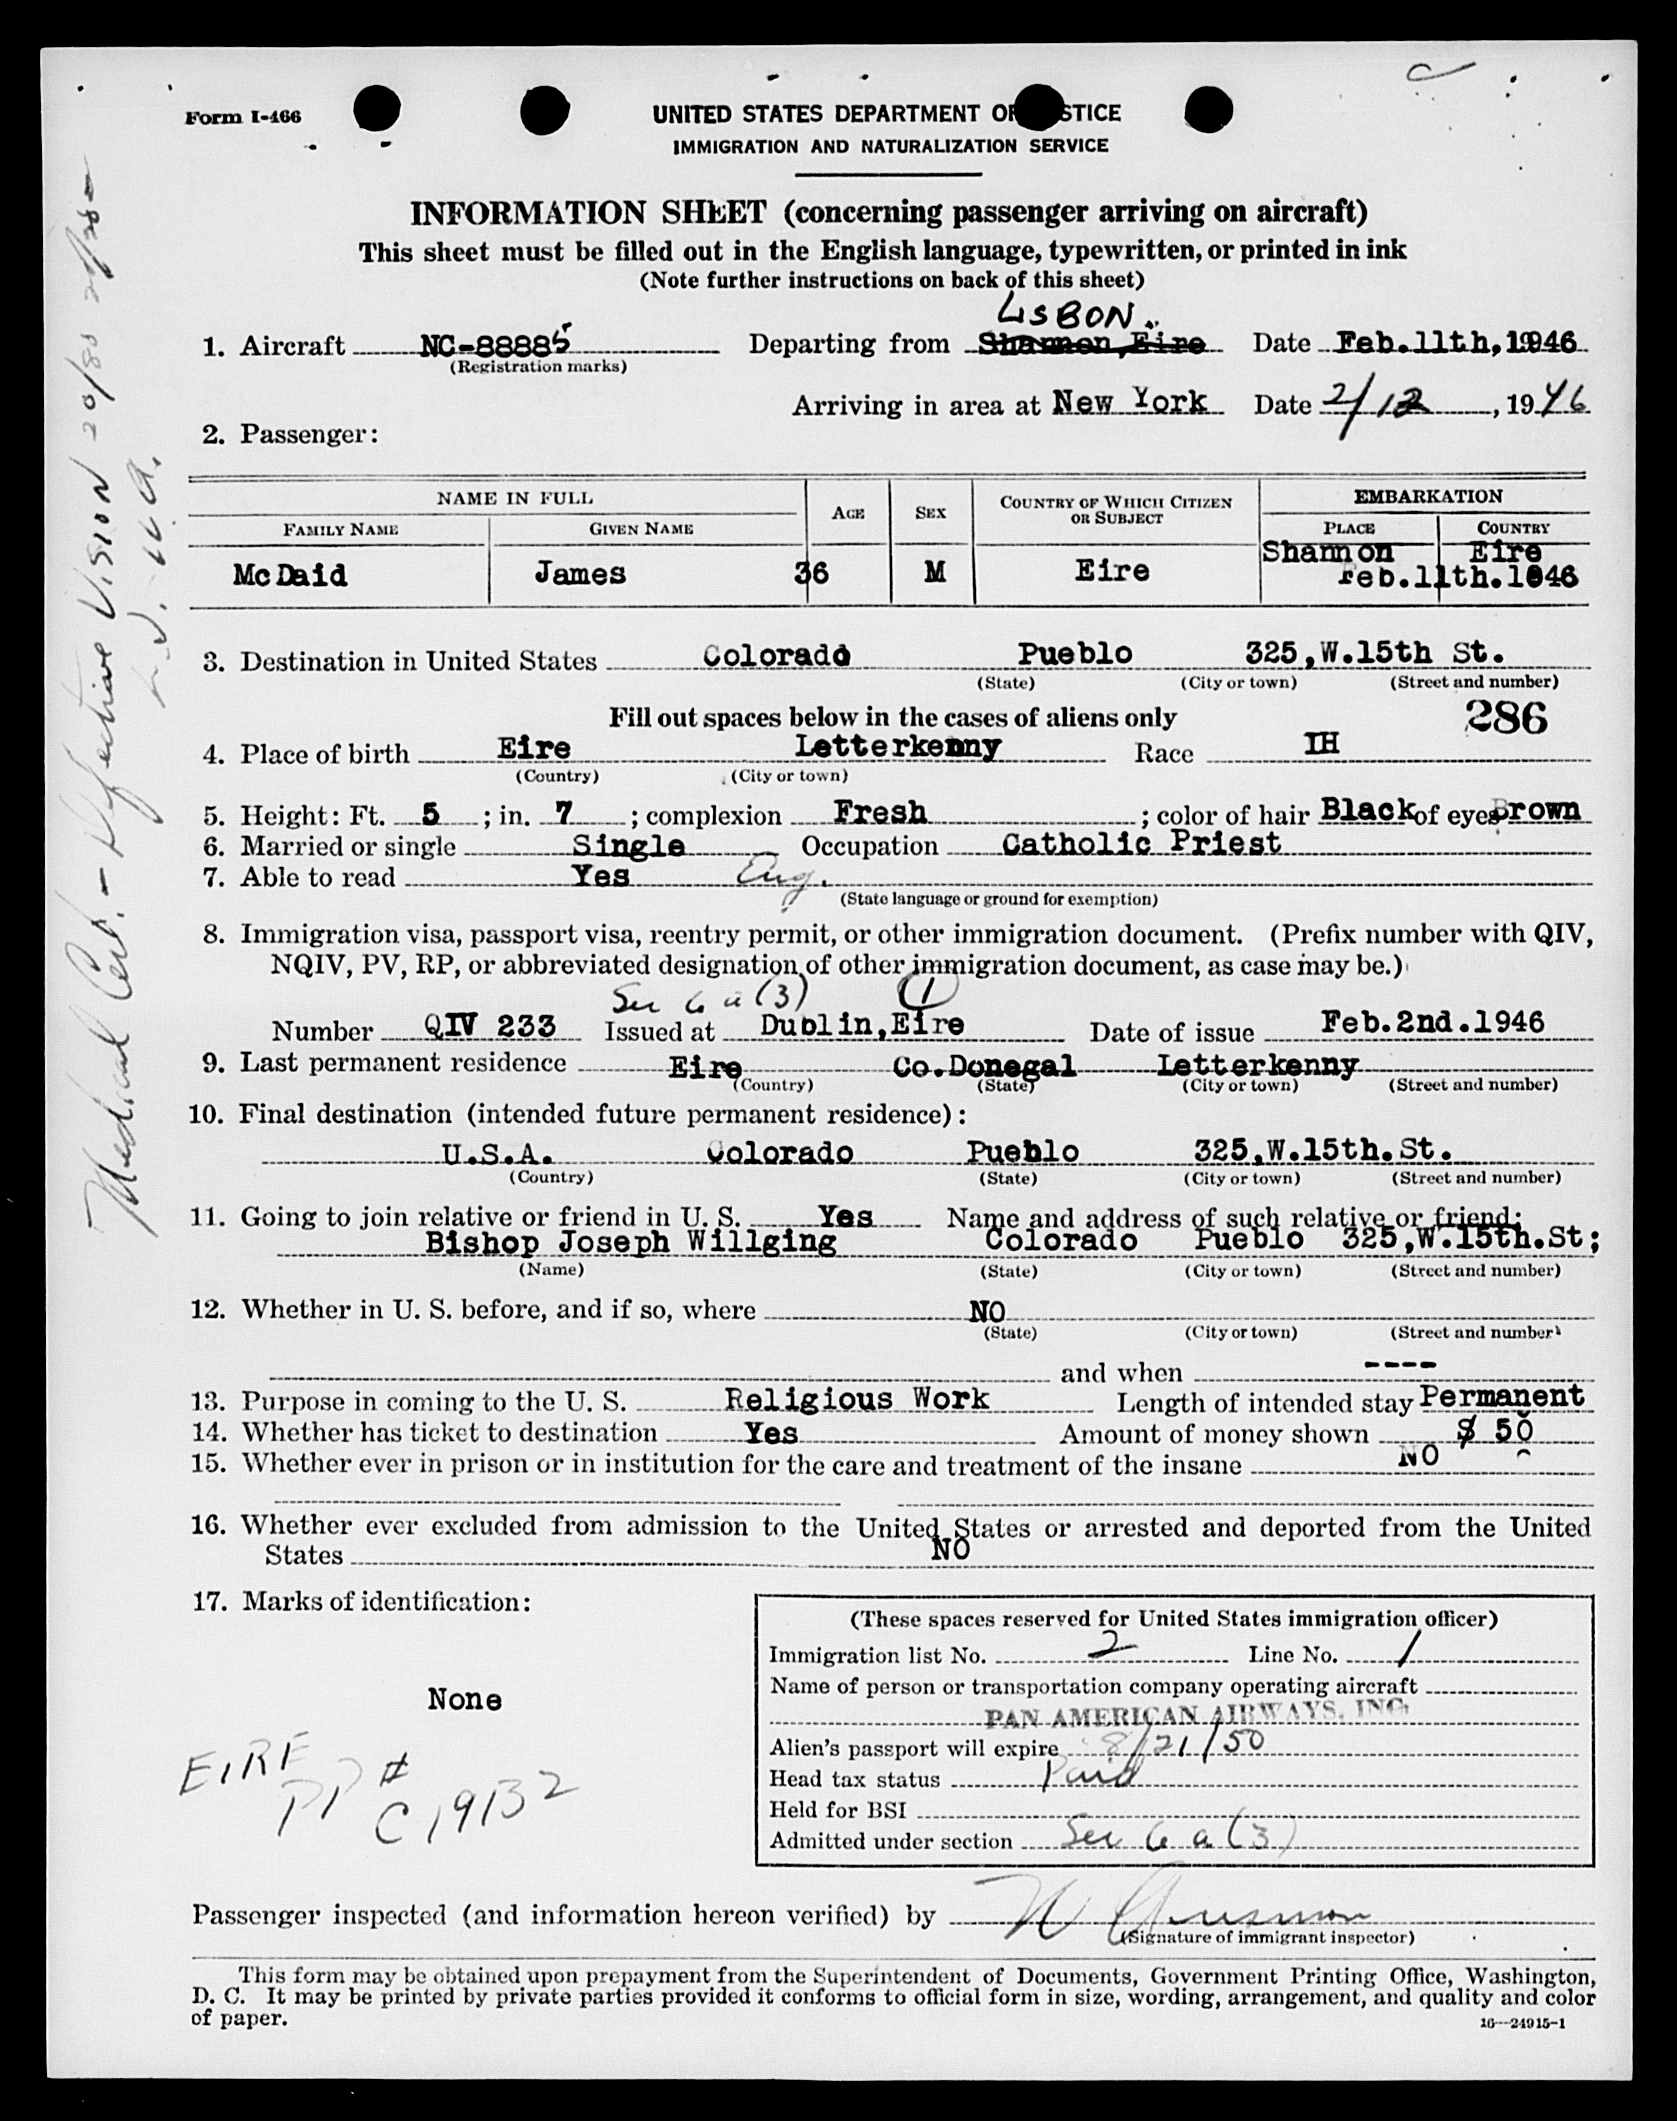 Form I-466
UNITED STATES DEPARTMENT OF STICE
IMMIGRATION AND NATURALIZATION SERVICE
INFORMATION SHEET (concerning passenger arriving on aircraft)
This sheet must be filled out in the English language, typewritten, or printed in ink
(Note further instructions on back of this sheet)
LISBON
1. Aircraft NC-88885 Departing from Shannon, Eire Date Feb.11th,1946
(Registration marks)
Arriving in area at New York Date 2/12, 1946
2. Passenger:
NAME IN FULL AGE SEX COUNTRY OF WHICH CITIZEN OR SUBJECT EMBARKATION
FAMILY NAME GIVEN NAME PLACE COUNTRY
Shannon Eire
McDaid James 36 M Eire Feb.11th.1946
3. Destination in United States Colorado Pueblo 325,W.15th St.
(State) (City or town) (Street and number)
Fill out spaces below in the cases of aliens only 286
4. Place of birth Eire Letterkenny Race IH
(Country) (City or town)
5. Height: Ft. 5 ; in. 7 ; complexion Fresh ; color of hair Black of eyes Brown
6. Married or single Single Occupation Catholic Priest
7. Able to read Yes Eng.
(State language or ground for exemption)
8. Immigration visa, passport visa, reentry permit, or other immigration document. (Prefix number with QIV,
NQIV, PV, RP, or abbreviated designation of other immigration document, as case may be.)
Sec 6 a (3) (1)
Number QIV 233 Issued at Dublin,Eire Date of issue Feb.2nd.1946
9. Last permanent residence Eire Co.Donegal Letterkenny
(Country) (State) (City or town) (Street and number)
10. Final destination (intended future permanent residence):
U.S.A. Colorado Pueblo 325,W.15th.St.
(Country) (State) (City or town) (Street and number)
11. Going to join relative or friend in U. S. Yes Name and address of such relative or friend:
Bishop Joseph Willging Colorado Pueblo 325,W.15th.St;
(Name) (State) (City or town) (Street and number)
12. Whether in U. S. before, and if so, where NO
(State) (City or town) (Street and number)
and when ----
13. Purpose in coming to the U. S. Religious Work Length of intended stay Permanent
14. Whether has ticket to destination Yes Amount of money shown $ 50
15. Whether ever in prison or in institution for the care and treatment of the insane NO
16. Whether ever excluded from admission to the United States or arrested and deported from the United
States NO
17. Marks of identification:
None
EIRE
PP #
C19132
(These spaces reserved for United States immigration officer)
Immigration list No. 2 Line No. 1
Name of person or transportation company operating aircraft
PAN AMERICAN AIRWAYS, INC.
Alien's passport will expire 8/21/50
Head tax status Paid
Held for BSI
Admitted under section Sec 6 a (3)
Passenger inspected (and information hereon verified) by
(Signature of immigrant inspector)
This form may be obtained upon prepayment from the Superintendent of Documents, Government Printing Office, Washington,
D. C. It may be printed by private parties provided it conforms to official form in size, wording, arrangement, and quality and color
of paper.
16—24915-1
Medical Cert. - Defective Vision 20/80